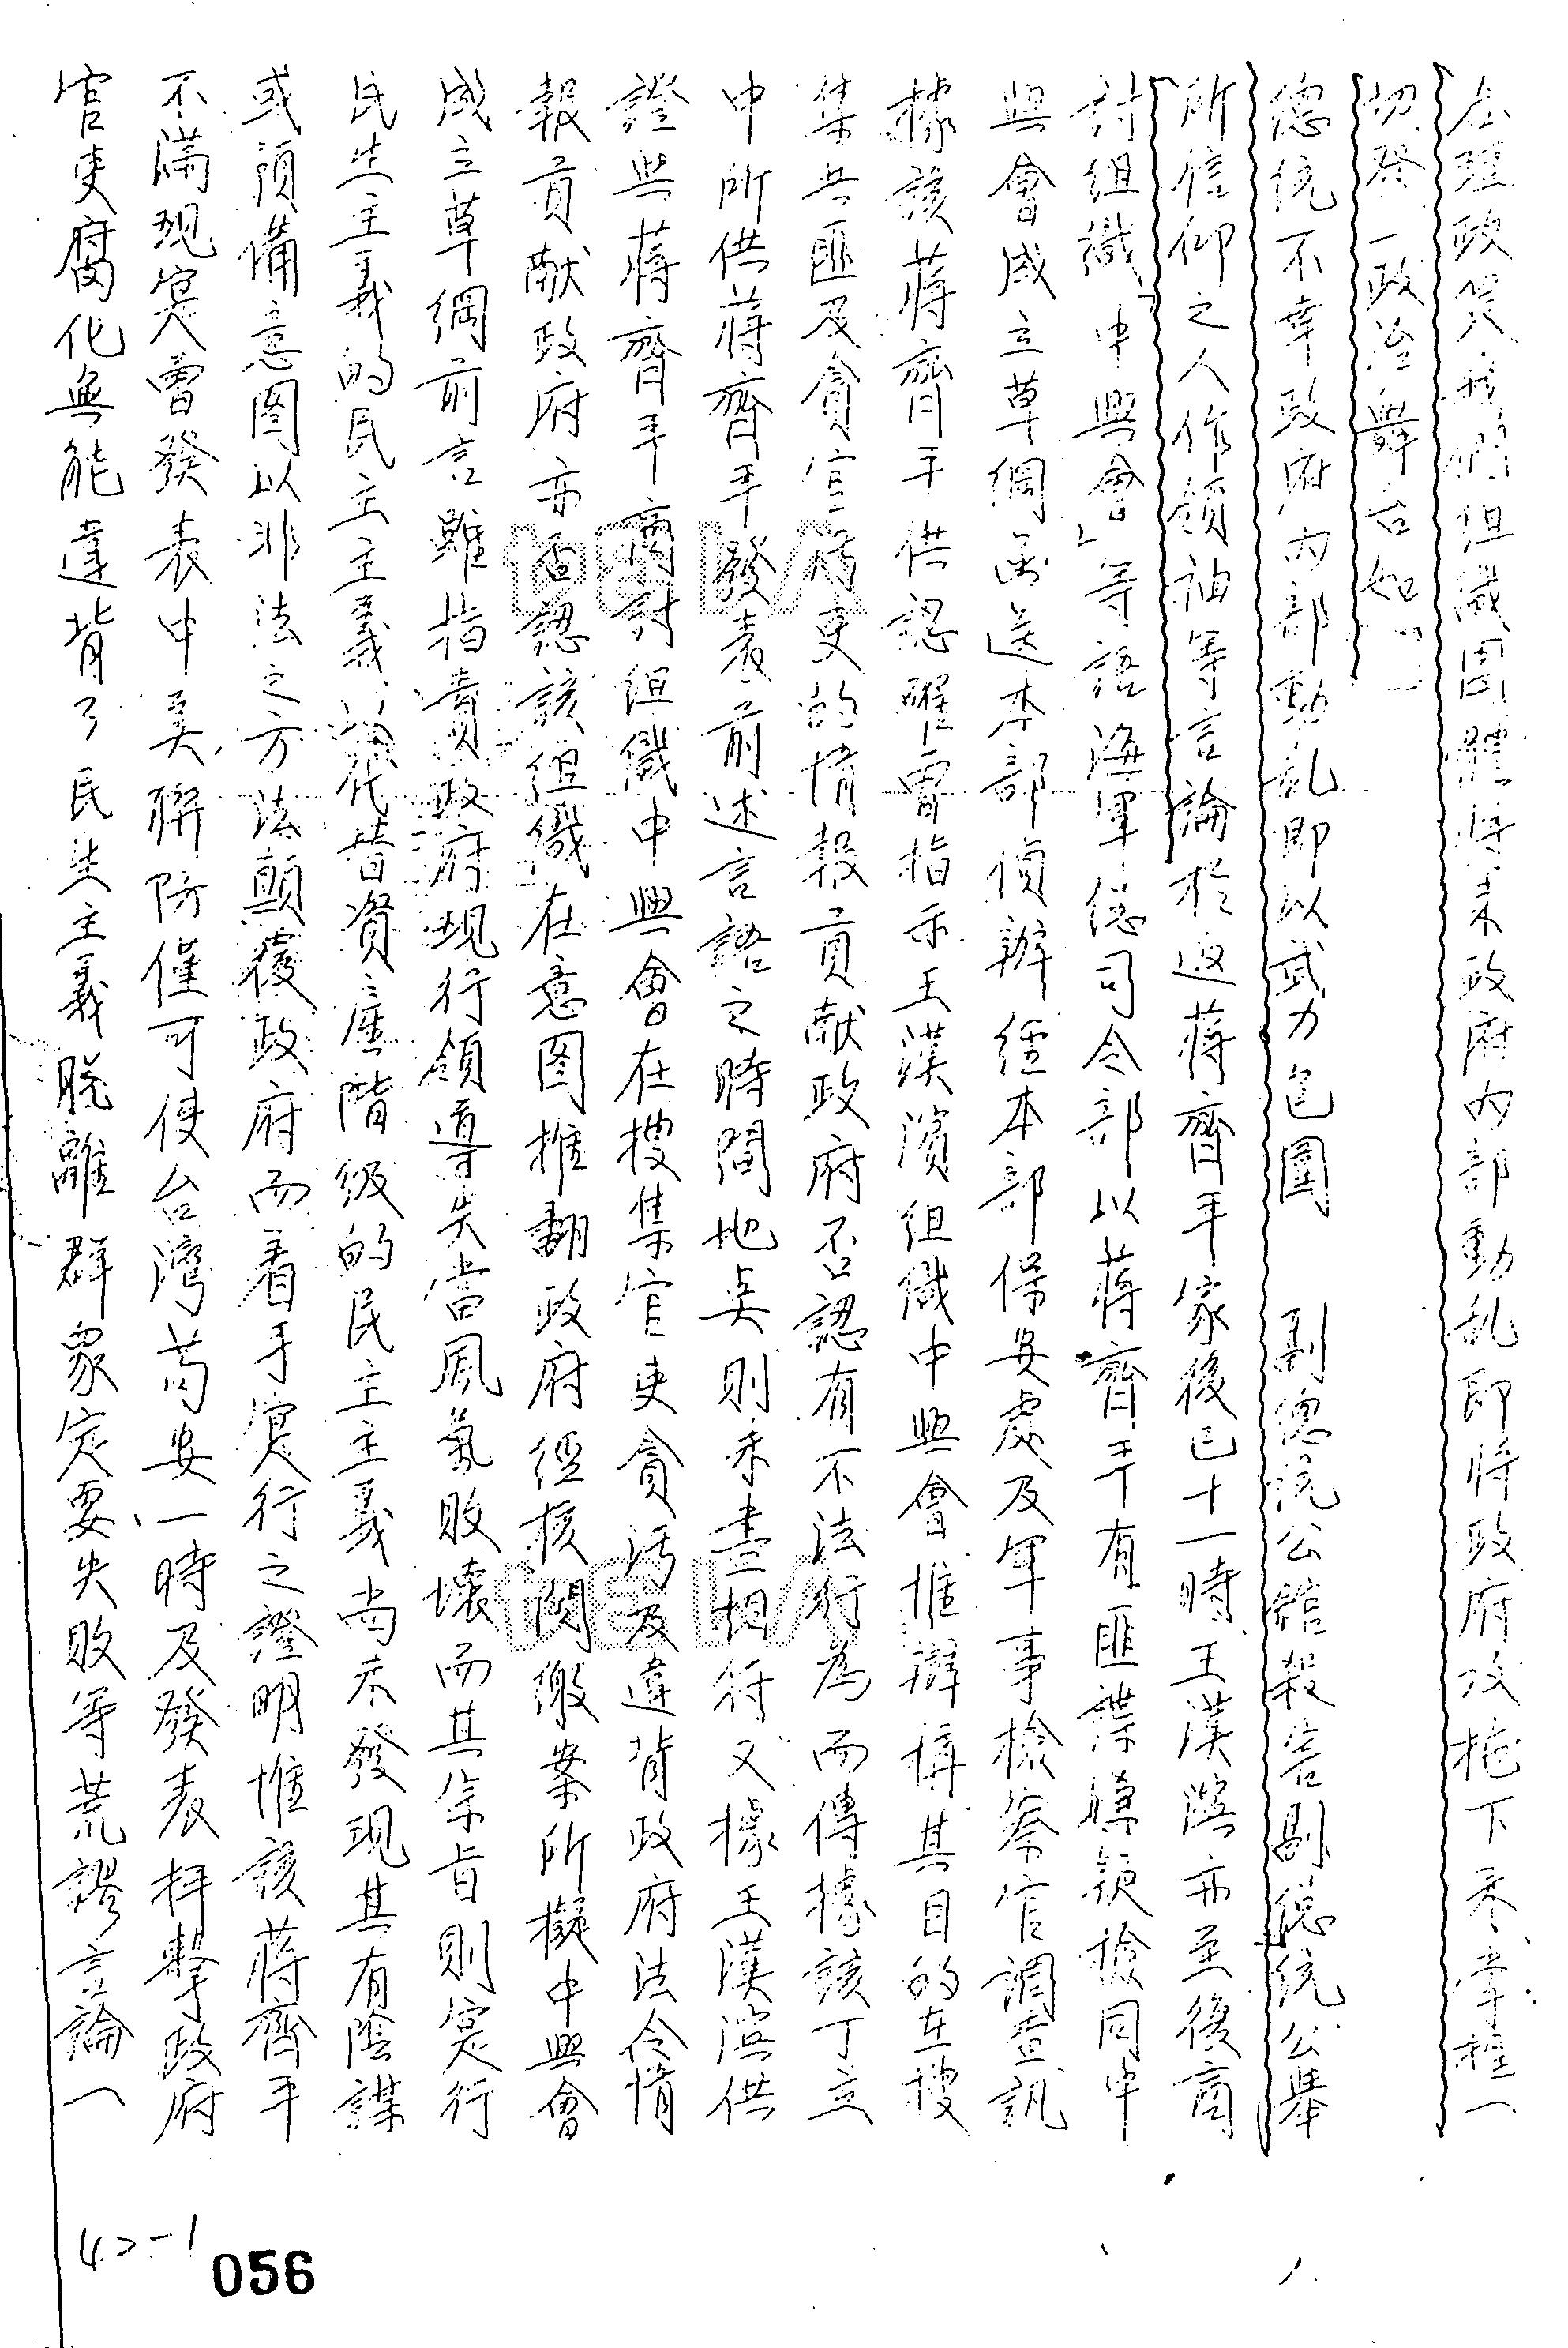 在理政只我們組織團體將來政府內部動乱即將政府攻拖下來掌握一
切登一政治舞台如
總統不幸政府內部動乱即以武力包圍　副總統公舘殺害副總統公舉
所信仰之人作領袖等言論於返蔣齊平家後已十一時王漢濱亦至後商
討組織「中興會」等語海軍總司令部以蔣齊平有匪諜嫌疑檢同中
興會成立草綱函送本部偵辦經本部保安處及軍事檢察官調查訊
據該蔣齊平供認確曾指示王漢濱組織中興會惟辯稱其目的在搜
集共匪及貪官污吏的情報貢献政府否認有不法行為而傳據該丁立
中所供蔣齊平發表前述言語之時間地点則未盡相符又據王漢濱供
證與蔣齊平商討組織中興會在搜集官吏貪污及違背政府法令情
報貢献政府亦否認該組織在意图推翻政府經核閱繳案所擬中興會
成立草綱前言雖指責政府現行領導失當風氣敗壞而其宗旨則实行
民生主義的民主主義以代替資產階級的民主主義尚未發現其有陰謀
或預備意图以非法之方法顛覆政府而着手实行之證明惟該蔣齊平
不滿現实曾發表中美聯防僅可使台灣苟安一時及發表抨擊政府
官吏腐化無能違背了民生主義脫離群衆定要失敗等荒謬言論一
42-1
056